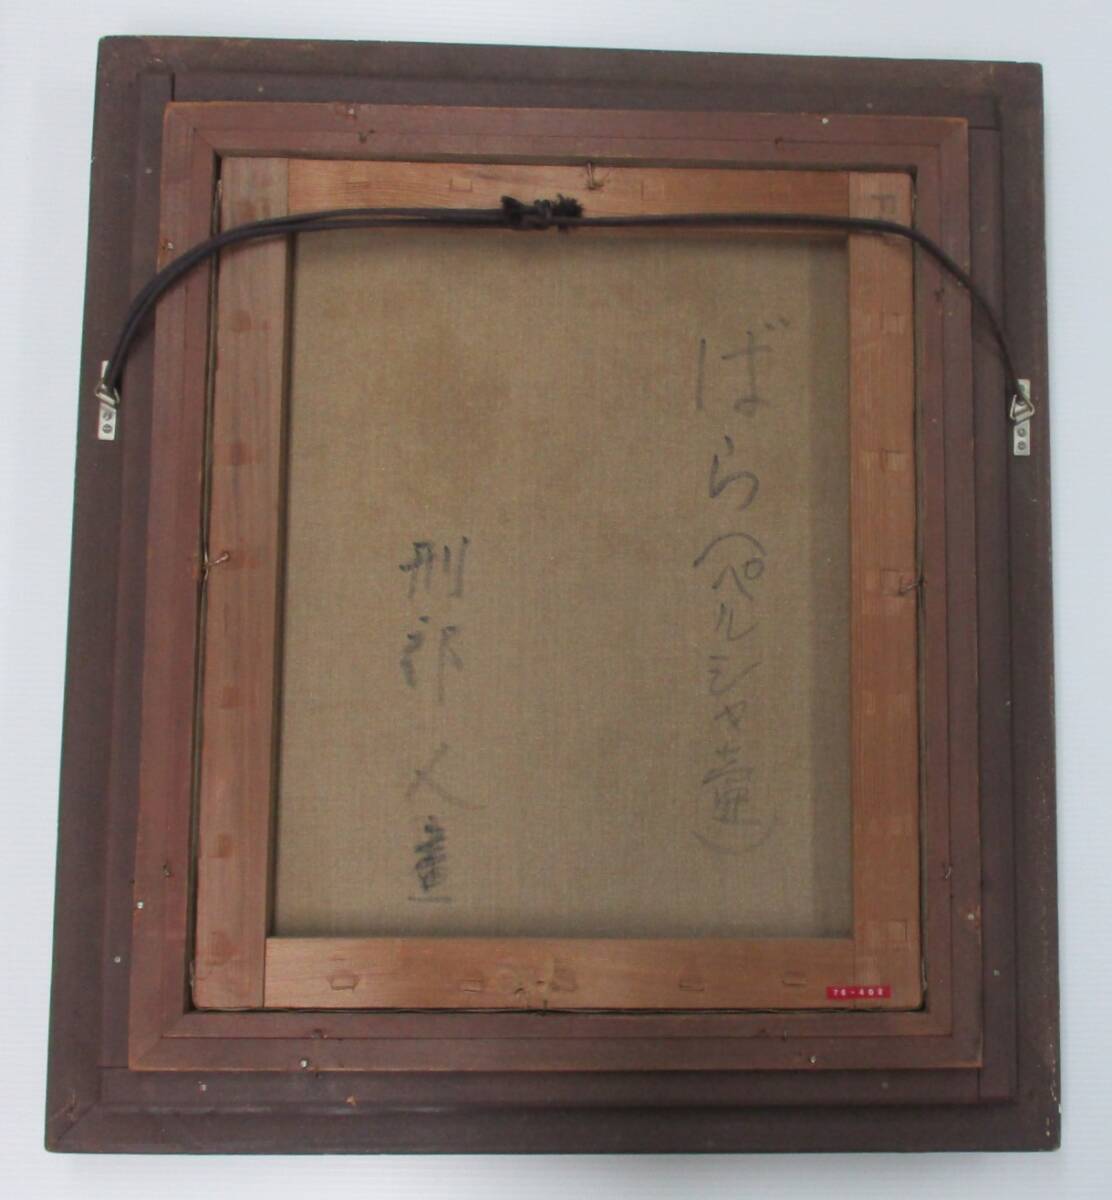 ばら(ペルシャ壺)
刑部人画
76-402
F